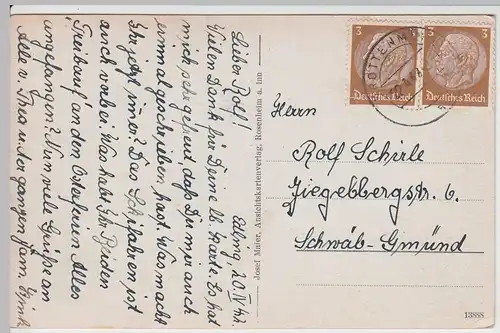 Edling, 20. IV. 42.
Lieber Rolf!
Vielen Dank für Deine lb. Karte. Es hat
mich sehr gefreut, daß Du mir auch
einmal geschrieben hast. Was macht
Ihr jetzt immer? Das Schifahren ist
auch vorbei. Was habt Ihr Beiden
Treibauf an den Osterferien Alles
angefangen? Nun viele Grüße an
Alle v. Thea u. der ganzen Fam.
Josef Maier, Ansichtskartenverlag, Rosenheim a. Inn
3
Deutsches Reich
3
Deutsches Reich
Herrn
Rolf Schirle
Ziegelbergstr. 6.
Schwäb-Gmünd
13888